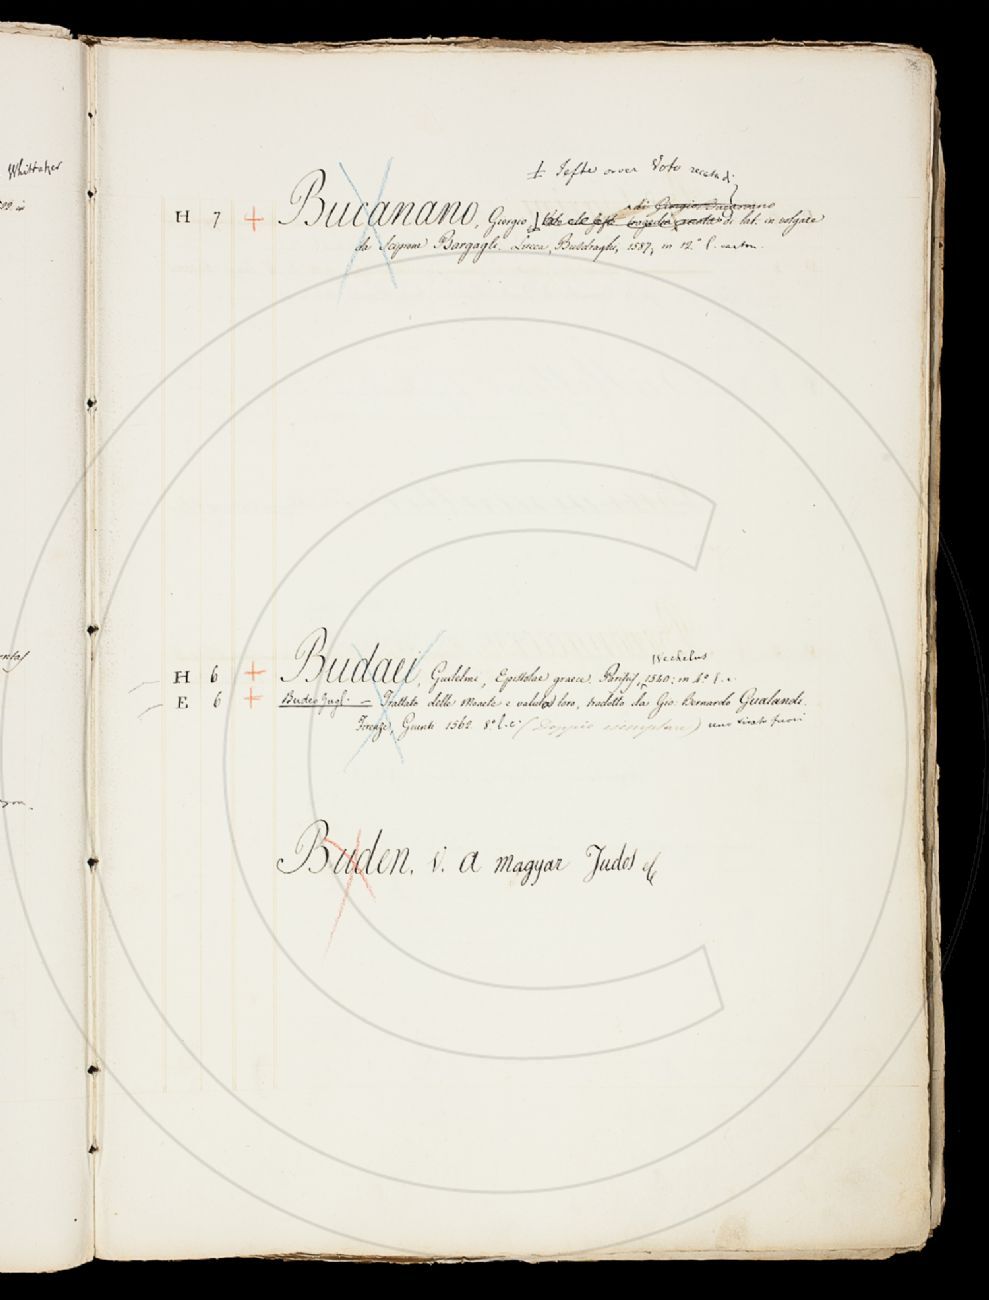 Whittaker
‡ Jefte ovver Voto recata di
di Giorgio Bucanano
H 7 + Bucanano, Giorgio, tragedia recata di lat. in volgare
da Scipion Bargagli. Lucca, Busdraghi, 1587, in 12.º l. carton.
Wechelus
H 6 + Budaei, Gulielmi, Epistolae graece. Parisiis, 1540: in 4.º l. c.
E 6 + Budeo Gugl. — Trattato delle Monete e valuta loro, tradotto da Gio. Bernardo Gualandi.
Firenze, Giunti 1562. 8.º l. c. (Doppio esemplare) uno tirato fuori
Buden. v. A magyar Judos